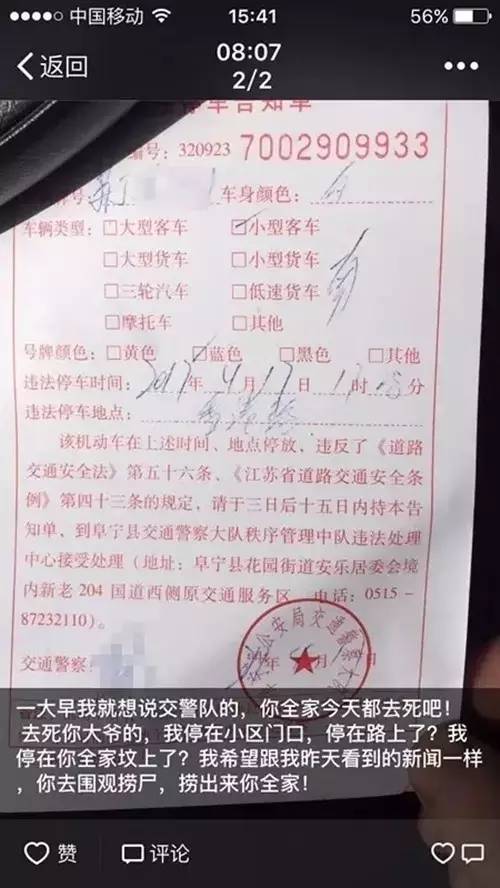 中国移动 15:41 56%
返回 08:07
2/2
停车告知单
编号: 320923 7002909933
车身颜色:
车辆类型: 大型客车 小型客车
大型货车 小型货车
三轮汽车 低速货车
摩托车 其他
号牌颜色: 黄色 蓝色 黑色 其他
违法停车时间: 2017年4月17日17时 分
违法停车地点:
该机动车在上述时间、地点停放,违反了《道路
交通安全法》第五十六条、《江苏省道路交通安全条
例》第四十三条的规定,请于三日后十五日内持本告
知单,到阜宁县交通警察大队秩序管理中队违法处理
中心接受处理(地址:阜宁县花园街道安乐居委会境
内新老204国道西侧原交通服务区,电话:0515-
87232110)。
交通警察:
公安局交通警察大
一大早我就想说交警队的,你全家今天都去死吧!
去死你大爷的,我停在小区门口,停在路上了?我
停在你全家坟上了?我希望跟我昨天看到的新闻一样
,你去围观捞尸,捞出来你全家!
赞 评论